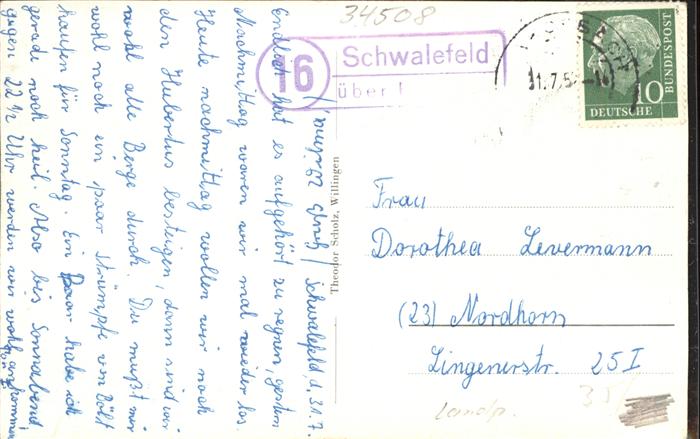 34508
16
Schwalefeld
über
31.7.5
DEUTSCHE
BUNDESPOST
10
Schwalefeld, d. 31.7.
Endlich hat es aufgehört zu regnen, gestern
Nachmittag waren wir mal wieder los.
Heute nachmittag wollen wir noch
den Hubertus besteigen, dann sind wir
wohl alle Berge durch. Du mußt mir
wohl noch ein paar Strümpfe von Bölt
kaufen für Sonntag. Ein Paar habe ich
gerade noch heil. Also bis Sonnabend,
gegen 22 1/2 Uhr werden wir wohl ankommen,
Theodor Scholz, Willingen
Frau
Dorothea Levermann
(23) Nordhorn
Lingenerstr. 25 I
Landp.
35/